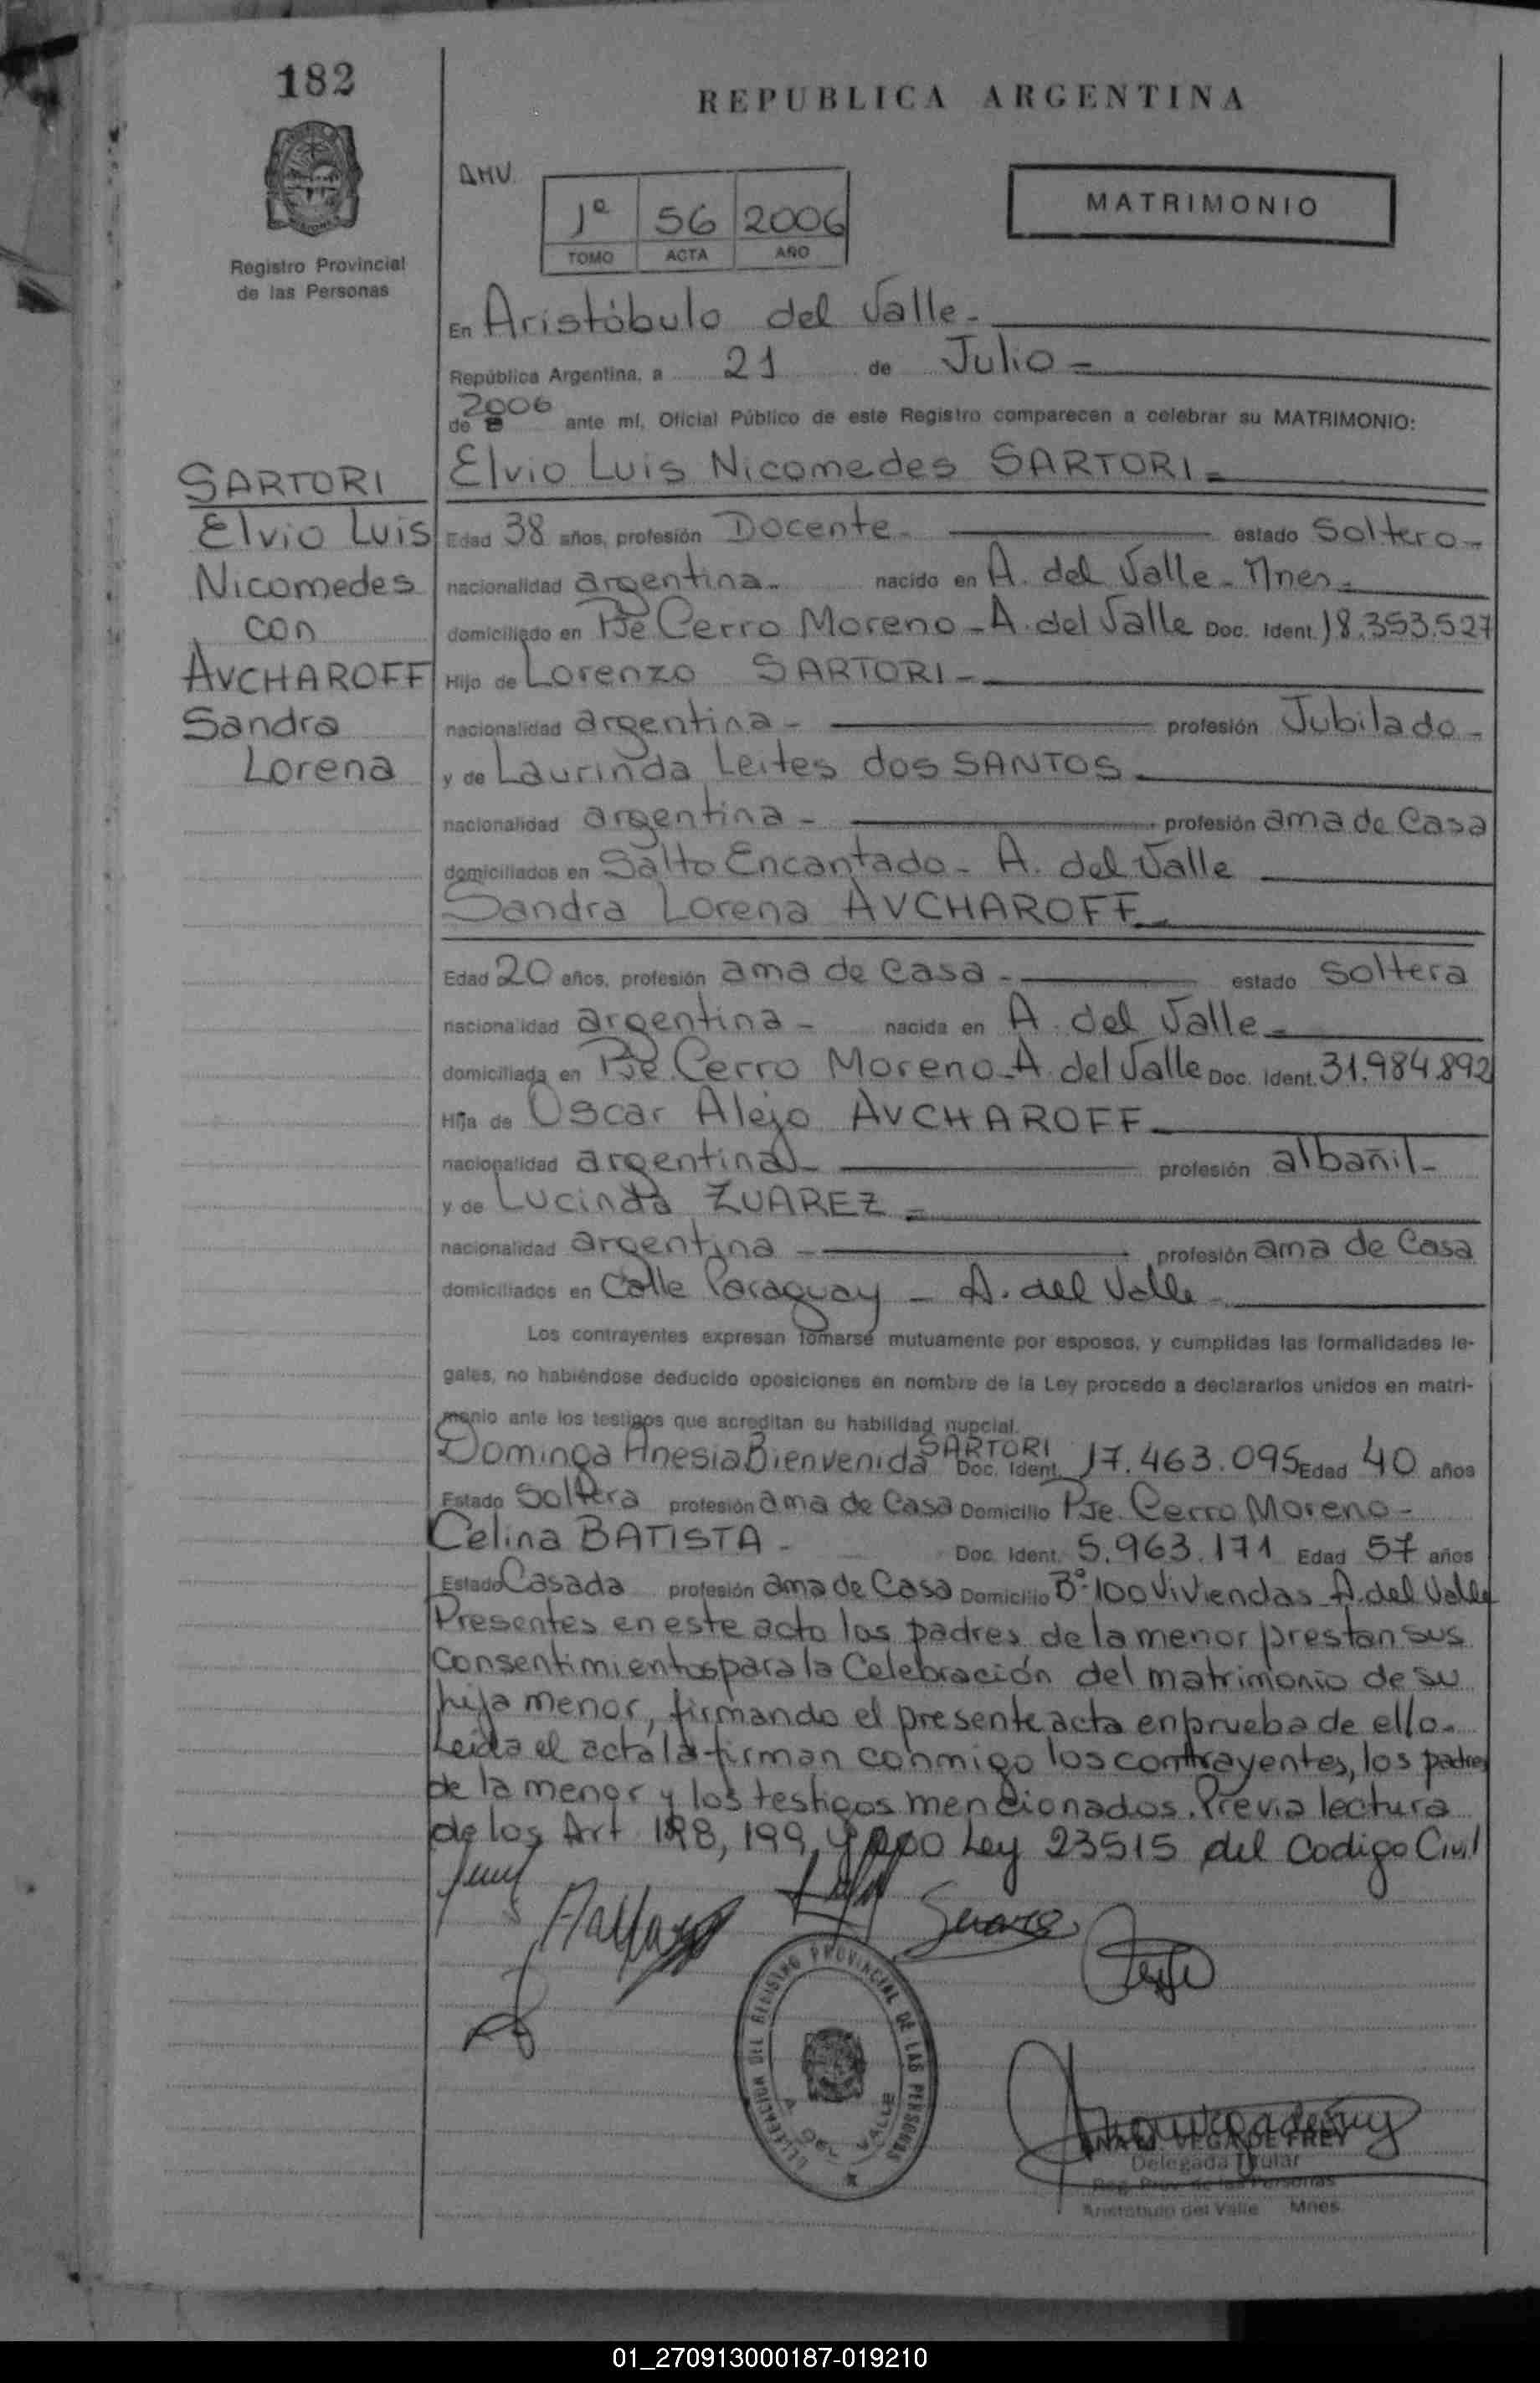 182
REPUBLICA ARGENTINA
AMV.
1º 56 2006
TOMO ACTA AÑO
MATRIMONIO
Registro Provincial
de las Personas
En Aristóbulo del Valle -
República Argentina, a 21 de Julio -
de 2006 ante mí, Oficial Público de este Registro comparecen a celebrar su MATRIMONIO:
Elvio Luis Nicomedes SARTORI -
SARTORI
Elvio Luis
Nicomedes
con
AVCHAROFF
Sandra
Lorena
Edad 38 años, profesión Docente - estado Soltero -
nacionalidad argentina - nacido en A. del Valle - Mnes -
domiciliado en Pje Cerro Moreno - A. del Valle Doc. Ident. 18.353.527
Hijo de Lorenzo SARTORI -
nacionalidad argentina - profesión Jubilado -
y de Laurinda Leites dos SANTOS -
nacionalidad argentina - profesión ama de Casa
domiciliados en Salto Encantado - A. del Valle
Sandra Lorena AVCHAROFF -
Edad 20 años, profesión ama de Casa - estado Soltera
nacionalidad argentina - nacida en A. del Valle -
domiciliada en Pje. Cerro Moreno - A. del Valle Doc. Ident. 31.984.892
Hija de Oscar Alejo AVCHAROFF -
nacionalidad argentina - profesión albañil -
y de Lucinda ZUAREZ -
nacionalidad argentina - profesión ama de Casa
domiciliados en Calle Paraguay - A. del Valle -
Los contrayentes expresan tomarse mutuamente por esposos, y cumplidas las formalidades le-
gales, no habiéndose deducido oposiciones en nombre de la Ley procedo a declararlos unidos en matri-
monio ante los testigos que acreditan su habilidad nupcial.
Dominga Anesia Bienvenida SARTORI Doc. Ident. 17.463.095 Edad 40 años
Estado Soltera profesión ama de Casa Domicilio Pje. Cerro Moreno -
Celina BATISTA - Doc. Ident. 5.963.171 Edad 57 años
Estado Casada profesión ama de Casa Domicilio Bº 100 Viviendas A. del Valle
Presentes en este acto los padres de la menor prestan sus
Consentimientos para la Celebración del matrimonio de su
hija menor, firmando el presente acta en prueba de ello.
Leida el acta la firman conmigo los contrayentes, los padres
de la menor y los testigos mencionados. Previa lectura
de los Art 198, 199, y 200 Ley 23515 del Codigo Civil
Suarez
DELEGACION DEL REGISTRO PROVINCIAL DE LAS PERSONAS
A. DEL VALLE
ANA M. VEGA DE FREY
Delegada Titular
Reg. Prov. de las Personas
Aristobulo del Valle Mnes.
01_270913000187-019210